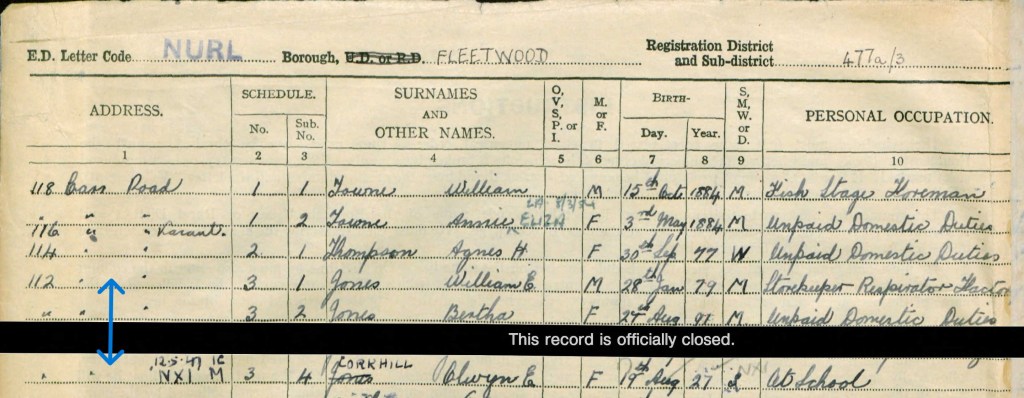 E.D. Letter Code NURL Borough, U.D. or R.D. FLEETWOOD Registration District and Sub-district 477a/3
ADDRESS. SCHEDULE. No. Sub. No. SURNAMES AND OTHER NAMES. O, V, S, P, or I. M. or F. BIRTH- Day. Year. S, M, W, or D. PERSONAL OCCUPATION.
1 2 3 4 5 6 7 8 9 10
118 Cass Road 1 1 Towne William M 15th Oct 1884 M Fish Stage Foreman
LA. 8/3/54
" " " 1 2 Towne Annie ELIZA F 3rd May 1884 M Unpaid Domestic Duties
116 " " Vacant.
114 " " 2 1 Thompson Agnes H. F 30th Sep 77 W Unpaid Domestic Duties
112 " " 3 1 Jones William E. M 28th Jan 79 M Storekeeper Respirator Facto
" " " 3 2 Jones Bertha F Aug 91 M Unpaid Domestic Duties
This record is officially closed.
12.5.47 CORKHILL
" " NX1 M 3 4 Jones Olwyn E F 19th Aug 27 S At School